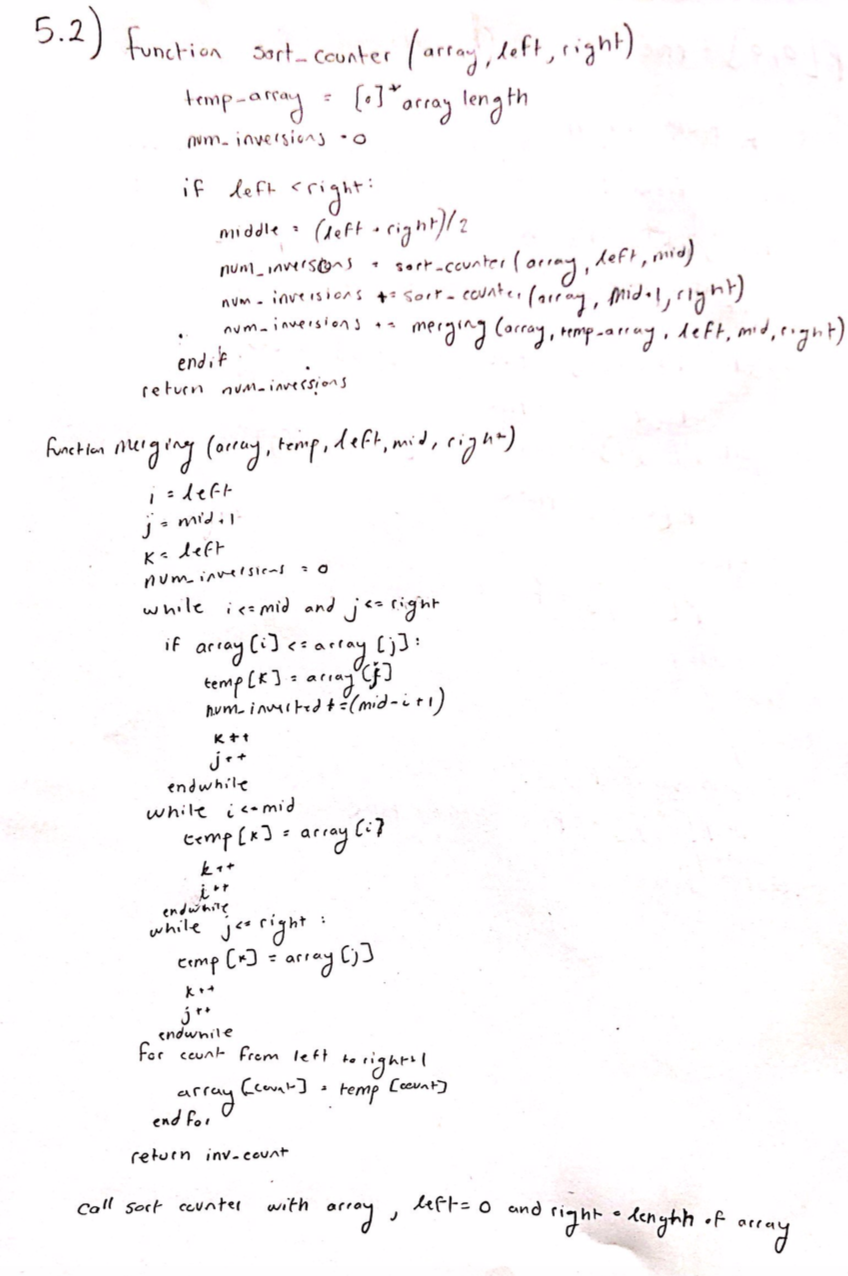 5.2) function sort_counter (array, left, right)
temp-array = [0]*array length
num_inversions = 0
if left < right:
middle = (left + right)/2
num_inversions = sort-counter (array, left, mid)
num_inversions += sort-counter (array, mid+1, right)
num_inversions += merging (array, temp-array, left, mid, right)
endif
return num_inversions
function merging (array, temp, left, mid, right)
i = left
j = mid+1
k = left
num_inversions = 0
while i <= mid and j <= right
if array [i] <= array [j]:
temp [k] = array [j]
num_inverted += (mid-i+1)
k++
j++
endwhile
while i <= mid
temp [k] = array [i]
k++
i++
endwhile
while j <= right :
temp [k] = array [j]
k++
j++
endwhile
for count from left to right+1
array [count] = temp [count]
end for
return inv-count
call sort counter with array, left = 0 and right = lenghh of array